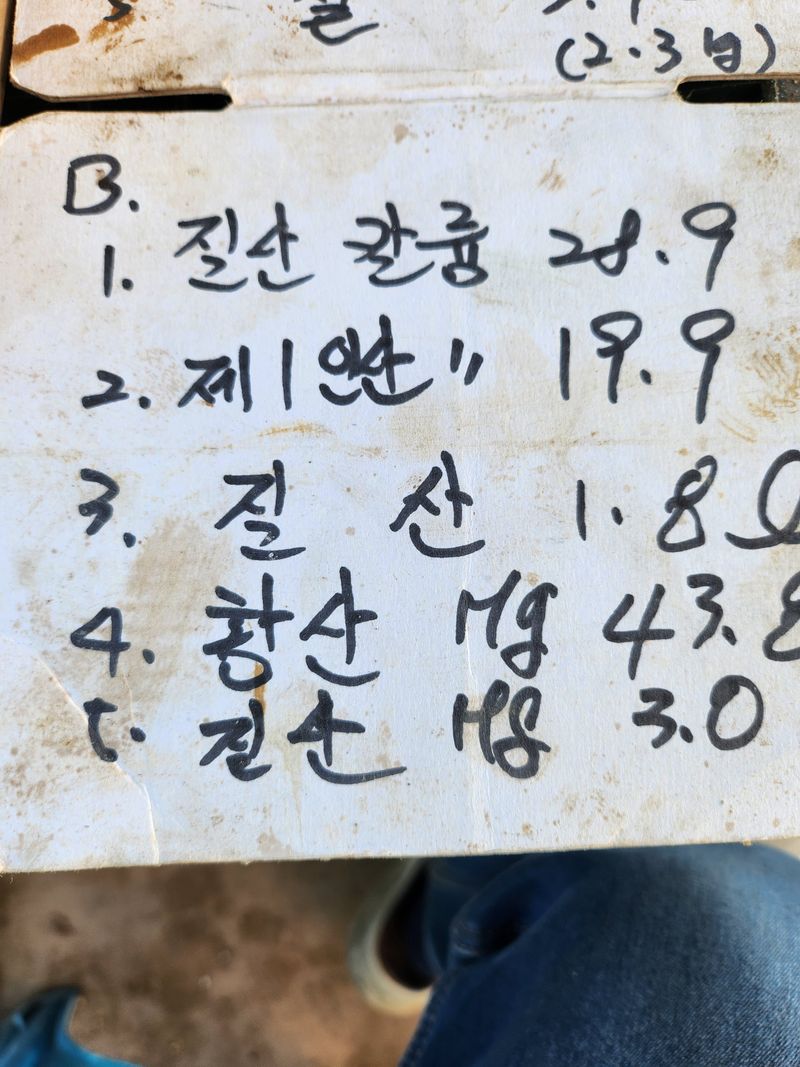 (2.3 봉)
B.
1. 질산 칼륨 28.9
2. 제1인산 〃 19.9
3. 질 산 1.8ℓ
4. 황산 Mg 43.8
5. 질산 Mg 3.0